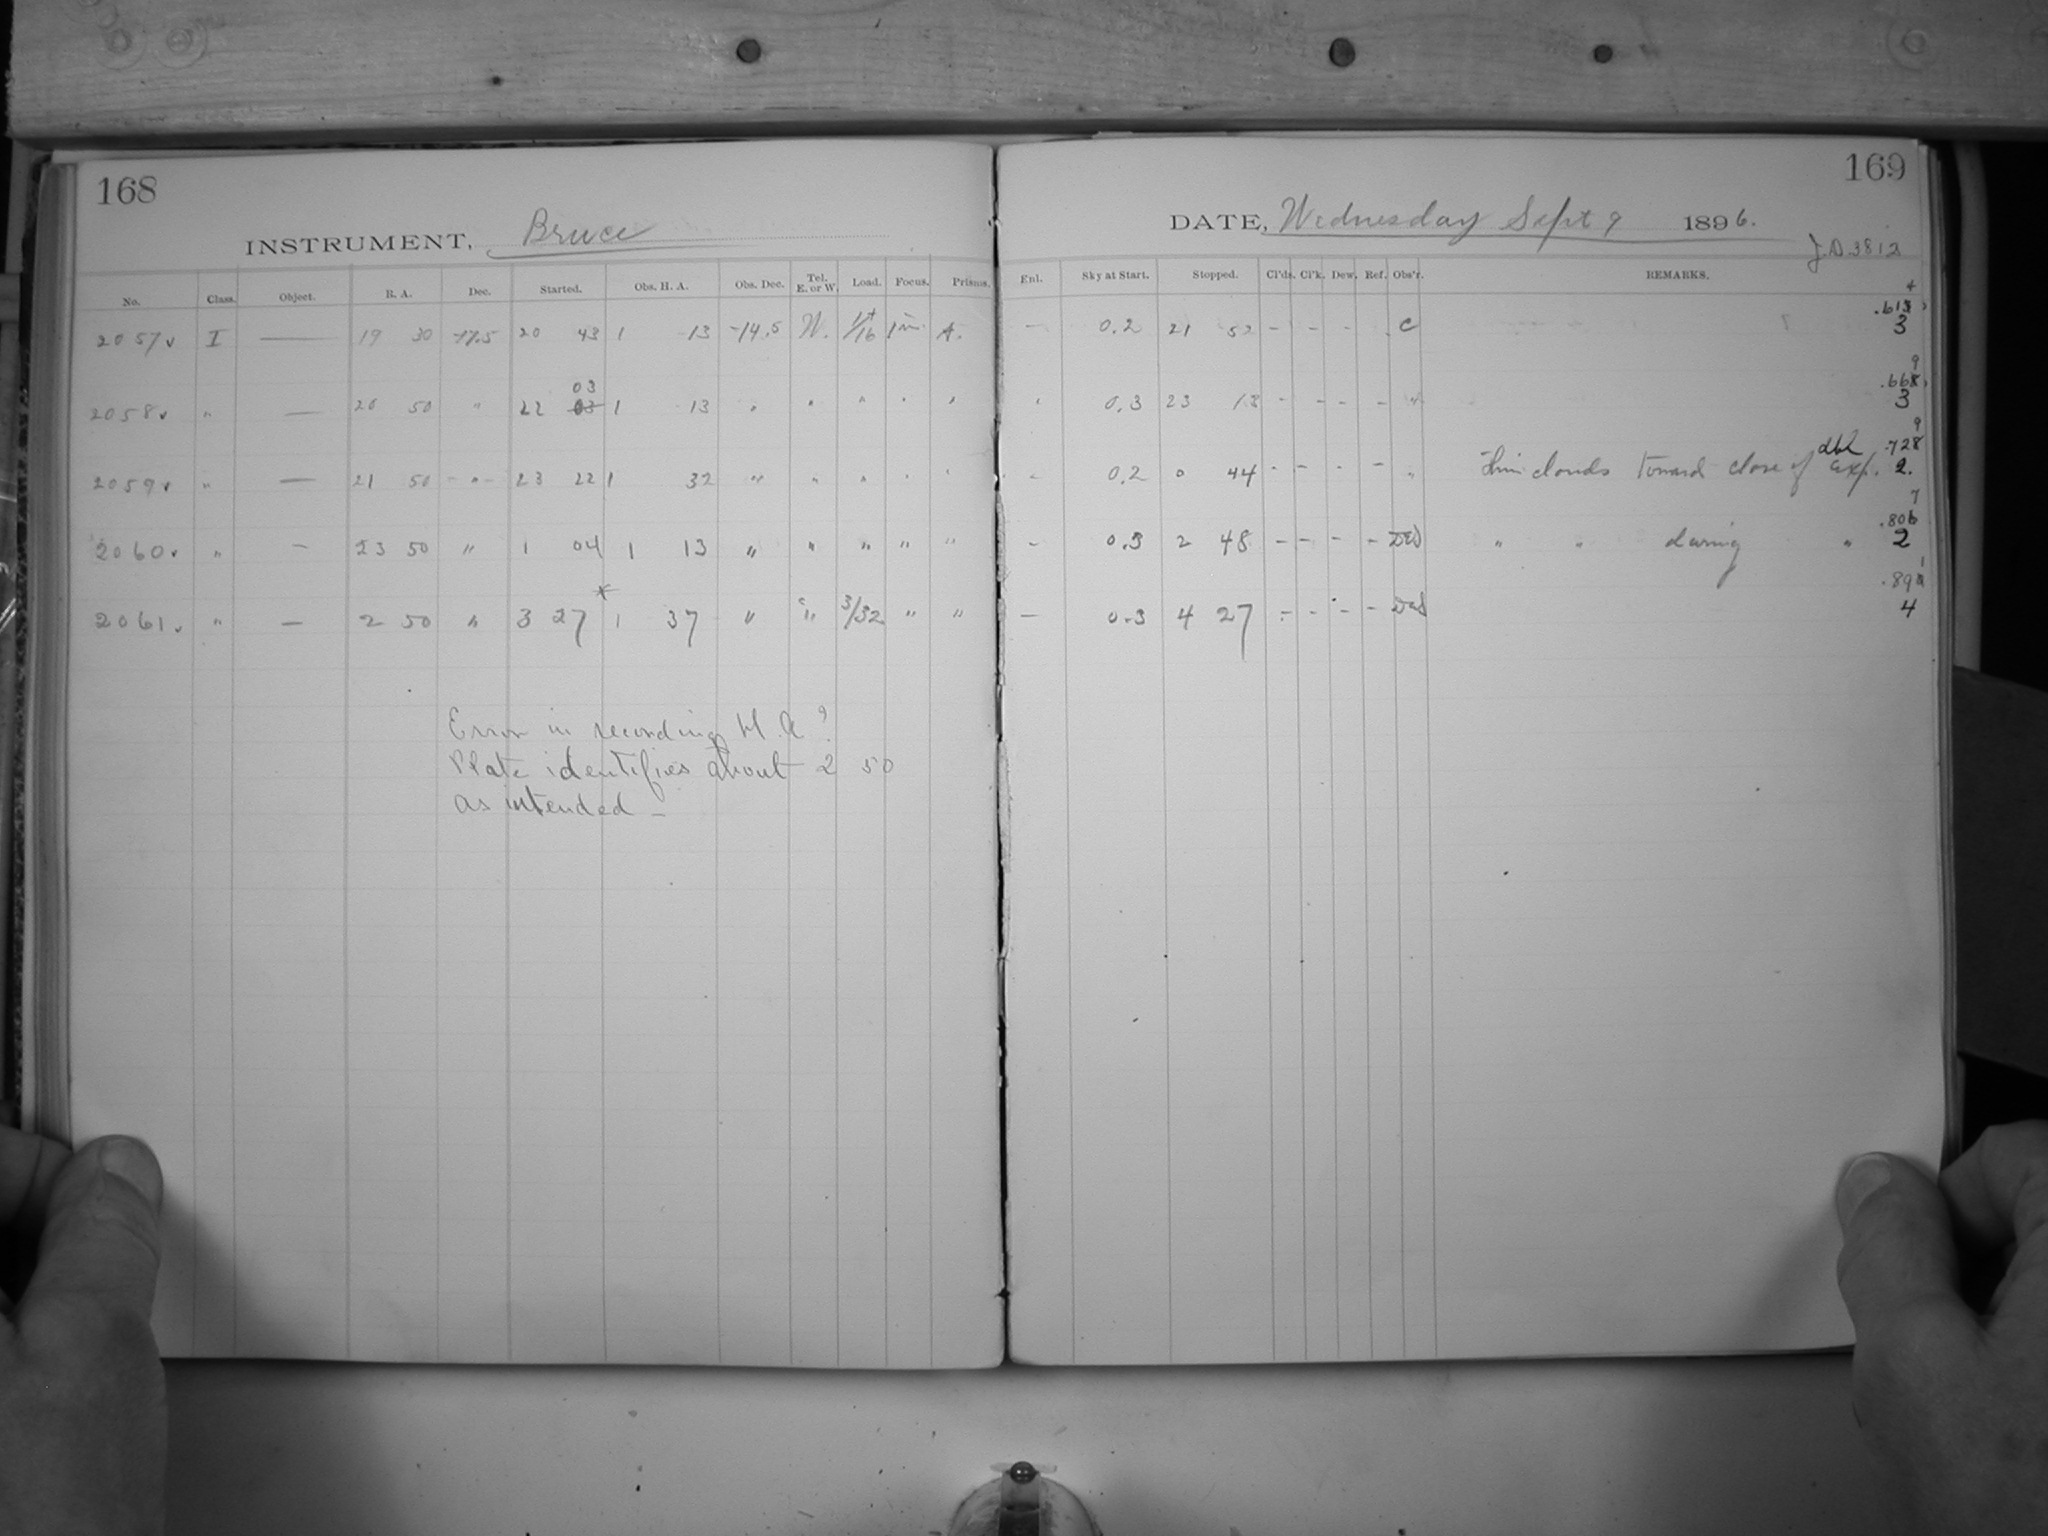 168
INSTRUMENT, Bruce
No. Class. Object. R. A. Dec. Started. Obs. H. A. Obs. Dec. Tel. E. or W. Load. Focus. Prisms.
2057 I — 19 30 -17.5 20 43 1 13 -14.5 W. 1/16 1 in A.
03
2058 " — 20 50 " 22 03 1 13 " " " " "
2059 " — 21 50 - " - 23 22 1 32 " " " " "
2060 " — 23 50 " 1 04 1 13 " " " " "
2061 " — 2 50 " 3 27 * 1 37 " " 3/32 " "
Error in recording H. A ?
Plate identifies about 2 50
as intended —
169
DATE, Wednesday Sept 9 1896.
J.D. 3812
Enl. Sky at Start. Stopped. Cl'ds. Cl'k. Dew. Ref. Obs'r. REMARKS.
— 0.2 21 52 - - - C 3
" 0.3 23 13 - - - - " 3
- 0.2 0 44 - - - - " Thin clouds toward close of exp. .728 2.
- 0.3 2 48 - - - - " " during " .806 2
— 0.3 4 27 - - - - 4